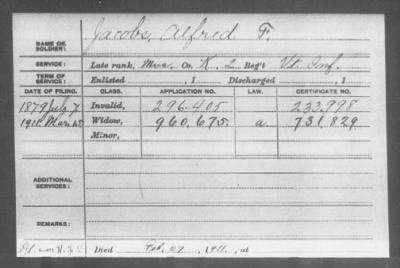 NAME OF SOLDIER: Jacobs, Alfred F.
SERVICE: Late rank, Mus. Co. K, 2 Reg't Vt. Inf.
TERM OF SERVICE: Enlisted , 1 Discharged , 1
DATE OF FILING. CLASS. APPLICATION NO. LAW. CERTIFICATE NO.
1879 July 7 Invalid, 296.405 233.998
1911. Mar. Widow, 960.675. a. 731.829
Minor,
ADDITIONAL SERVICES:
REMARKS:
Died Feb. 27, 1911, at